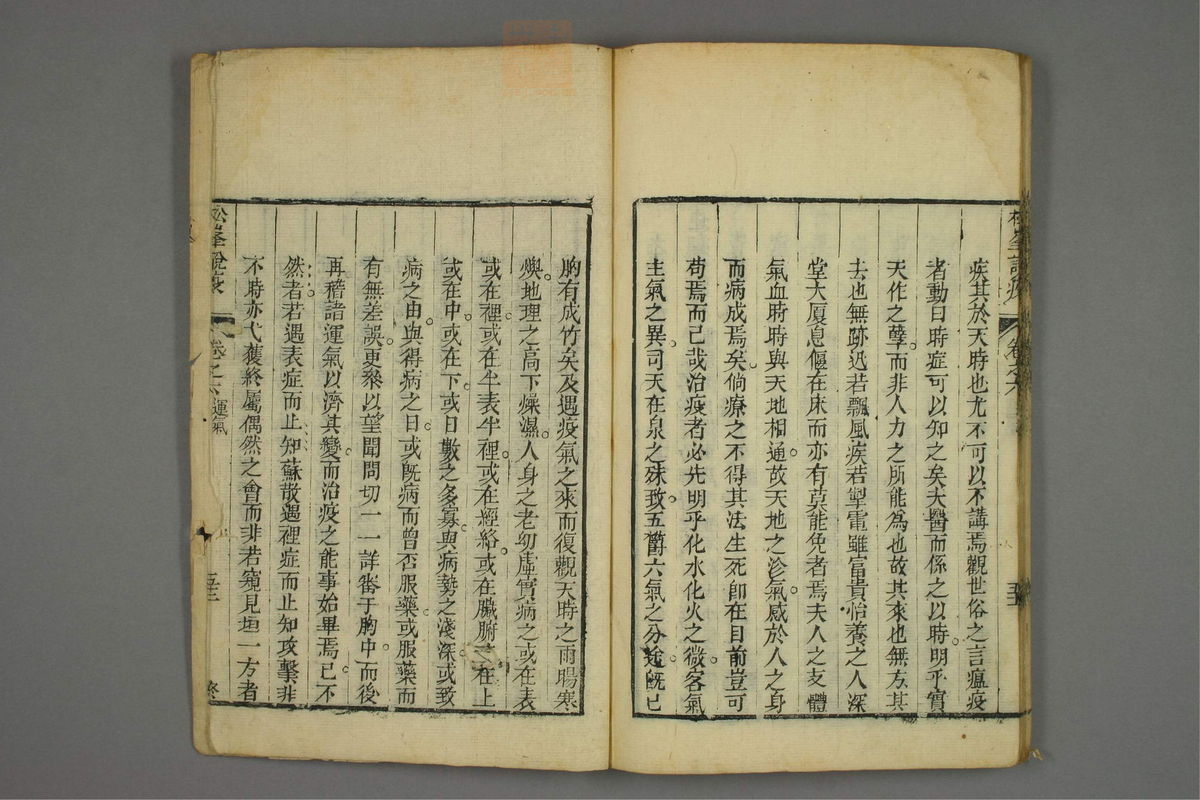 疾其於天時也尤不可以不講焉觀世俗之言瘟疫
者動曰時症可以知之矣夫醫而係之以時明乎實
天作之孽而非人力之所能為也故其來也無方其
去也無跡迅若飄風疾若掣電雖富貴怡養之人深
堂大厦息偃在床而亦有莫能免者焉夫人之支體
氣血時時與天地相通故天地之沴氣感於人之身
而病成焉矣倘療之不得其法生死卽在目前豈可
苟焉而已哉治疫者必先明乎化水化火之微客氣
主氣之異司天在泉之殊致五欝六氣之分途旣已
松峯說疫 卷之六 五
胸有成竹矣及遇疫氣之來而復觀天時之雨暘寒
燠地理之高下燥濕人身之老幼虛實病之或在表
或在裡或在半表半裡或在經絡或在臟腑或在上
或在中或在下或日數之多寡與病勢之淺深或致
病之由與得病之日或旣病而曾否服藥或服藥而
有無差誤更叅以望聞問切一一詳審于胸中而後
再稽諸運氣以濟其變而治疫之能事始畢焉已不
然者若遇表症而止知蘇散遇裡症而止知攻擊非
不時亦弋獲終屬偶然之會而非若窺見垣一方者
松峯說疫 卷之六 運氣